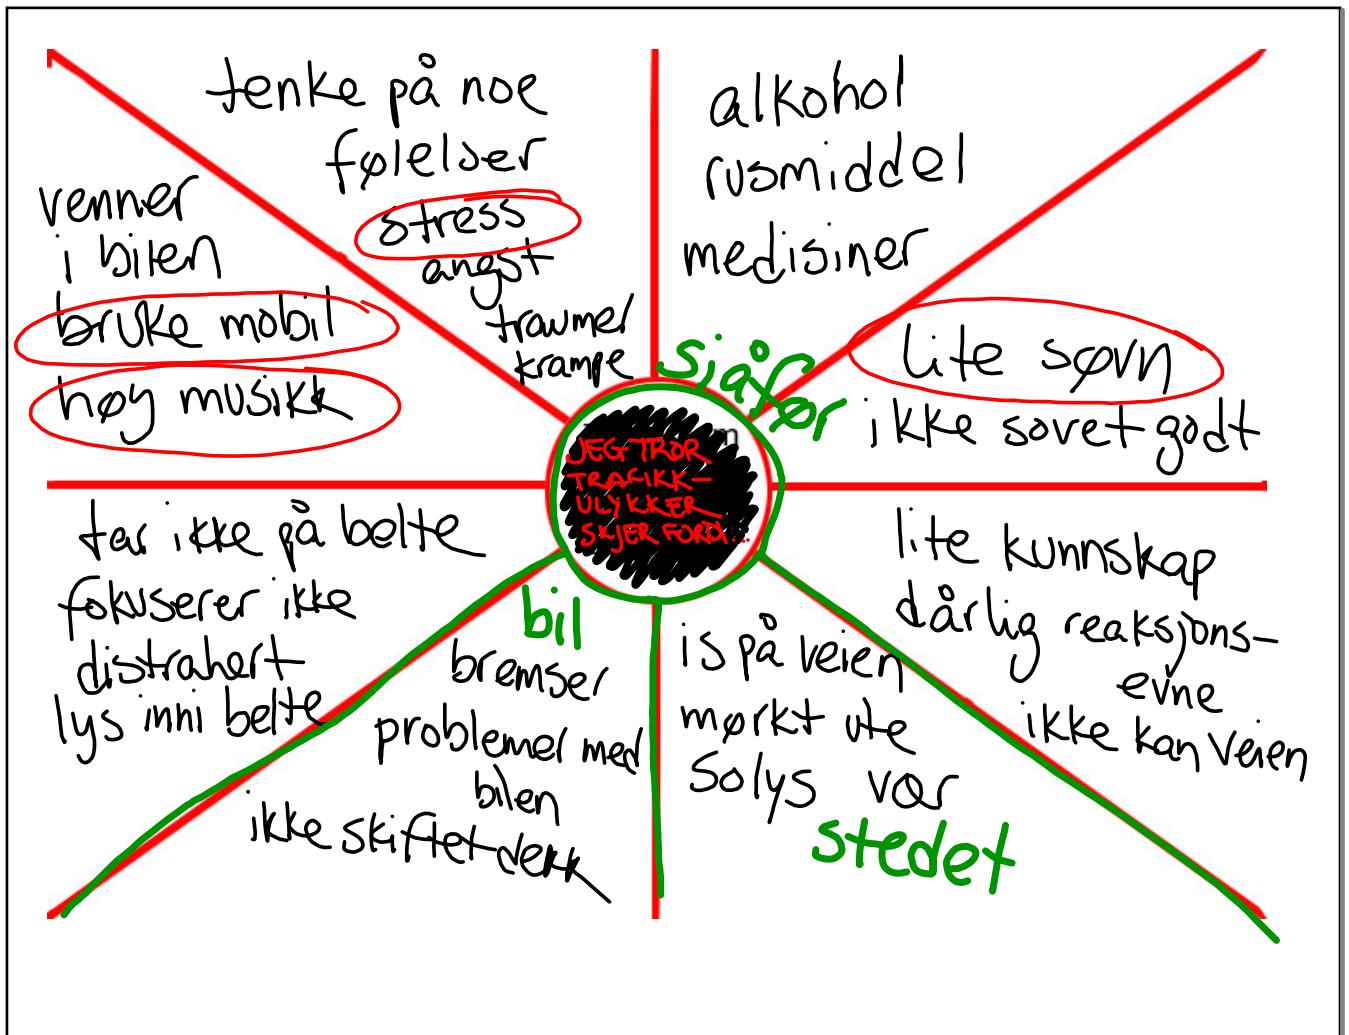 tenke på noe
følelser
stress
angst
traumer
krampe
alkohol
rusmiddel
medisiner
venner
i bilen
bruke mobil
høy musikk
sjåfør
lite søvn
ikke sovet godt
JEG TROR
TRAFIKK-
ULYKKER
SKJER FORDI...
tar ikke på belte
fokuserer ikke
distrahert
lys inni belte
bil
bremser
problemer med
bilen
ikke skiftet dekk
is på veien
mørkt ute
solys vær
stedet
lite kunnskap
dårlig reaksjons-
evne
ikke kan veien